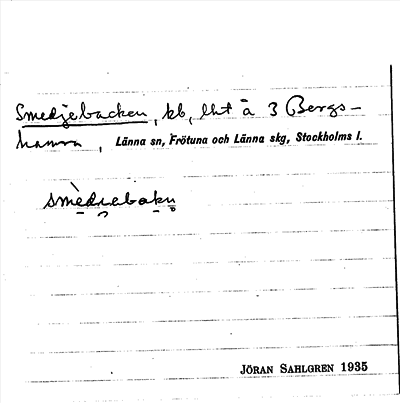 Smedjebacken, kb, lht å 3 Bergs-
hamra, Länna sn, Frötuna och Länna skg, Stockholms l.
JÖRAN SAHLGREN 1935